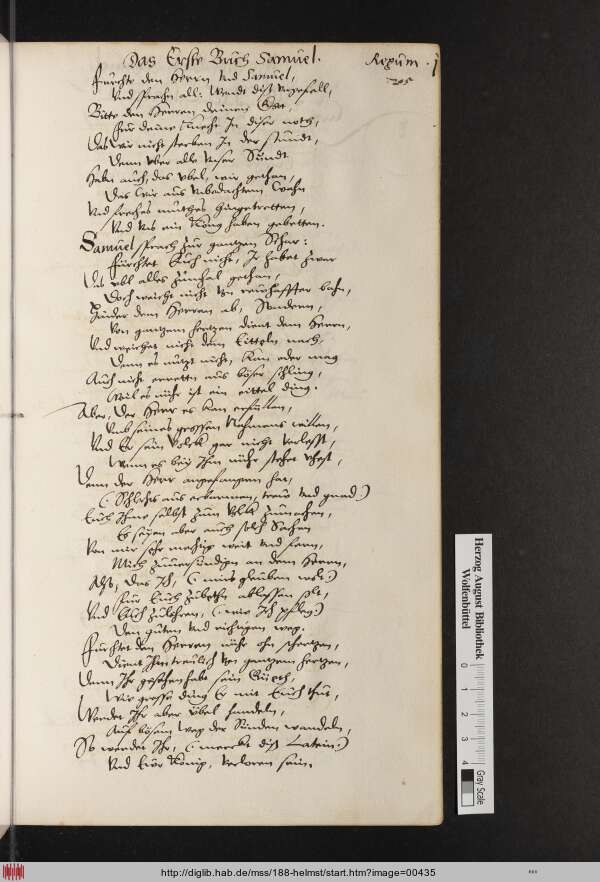 Das Erste Buch Samuel.
Regum. j
205
Furchte den Herrn Vnd Samuel,
Vnd sprachen all: Wendt diß Vngefall,
Bitte den Herren deinen Gott,
Für deine Knecht In diser noth,
Das wir nicht sterben In der stundt,
Denn vber alle Vnser Sündt
Habn auch, das Vbel, wir gethan,
Das wir aus Vnbedachtem wahn
Vnd freches muthes hingetretten,
Vnd Vns ein König haben gebetten.
Samuel sprach zur gantzen Schar:
Fürchtet Euch nicht, Ir habet zwar
Das vbl alles zumhal gethan,
Doch weicht nicht von bahn,
Hinder dem Herren ab, Sondern,
Von gantzem hertzen dient dem Herrn,
Vnd weichet nicht dem Eitteln nach,
Denn es nutzt nicht, Kan oder mag
Auch nicht erretten aus böser schling,
Weil es nicht ist ein eittel ding.
Aber, der Herr es kan
Vmb seines grossen Nahmens willen,
Vnd Er sein Volck gar nicht verlesst,
Wenn es bey Ihm nicht stehet vhest,
Denn der Herr angefangenn hat,
(: Schlechts aus erbarmen, trew vnd gnad:)
Euch Ihme selbst zum Volck zumachen,
Es seyen aber auch solch Sachen
Von mir sehr weit vnd fern,
Mich zuuersündigen an dem Herrn,
Also, Das Ich, (: mirs glauben wolt:)
Für Euch zubethen ablassen solt,
Vnd Euch zulehren, (: wie Ich pfleg:)
Den guten vnd richtigen weg.
Furchtet den Herren nicht ohn schertzen,
Dient Ihm treulich von gantzem hertzen,
Denn Ihr gesehen habt sein
Wie grosse ding Er mit Euch thut,
Werdet Ihr aber Vbel handeln,
Auf bösem weg der Sünden wandeln,
So werdet Ihr, (: merckt diß Latein:)
Vnd Ewr König, verloren sein.
Herzog August Bibliothek
Wolfenbüttel
0 1 2 3 4
Gray Scale
http://diglib.hab.de/mss/188-helmst/start.htm?image=00435